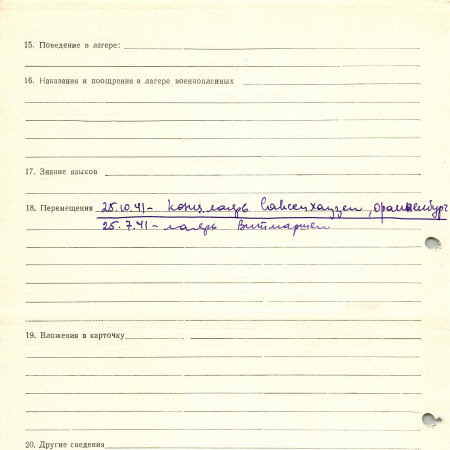 15. Поведение в лагере:
16. Наказания и поощрения в лагере военнопленных
17. Знание языков
18. Перемещения 25.10.41 - концлагерь Саксенхаузен, Ораниенбург
25.7.41 - лагерь Витмаршен
19. Вложения в карточку
20. Другие сведения